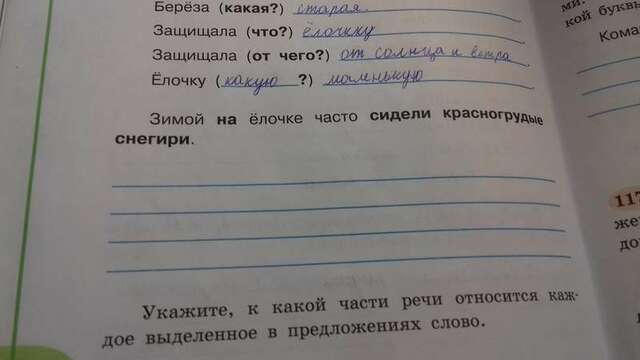 Берёза (какая?) старая.
Защищала (что?) ёлочку
Защищала (от чего?) от солнца и ветра
Ёлочку (какую ?) маленькую
Зимой на ёлочке часто сидели красногрудые
снегири.
Укажите, к какой части речи относится каж-
дое выделенное в предложениях слово.
ми.
кой буквы
Кома
117
же
до